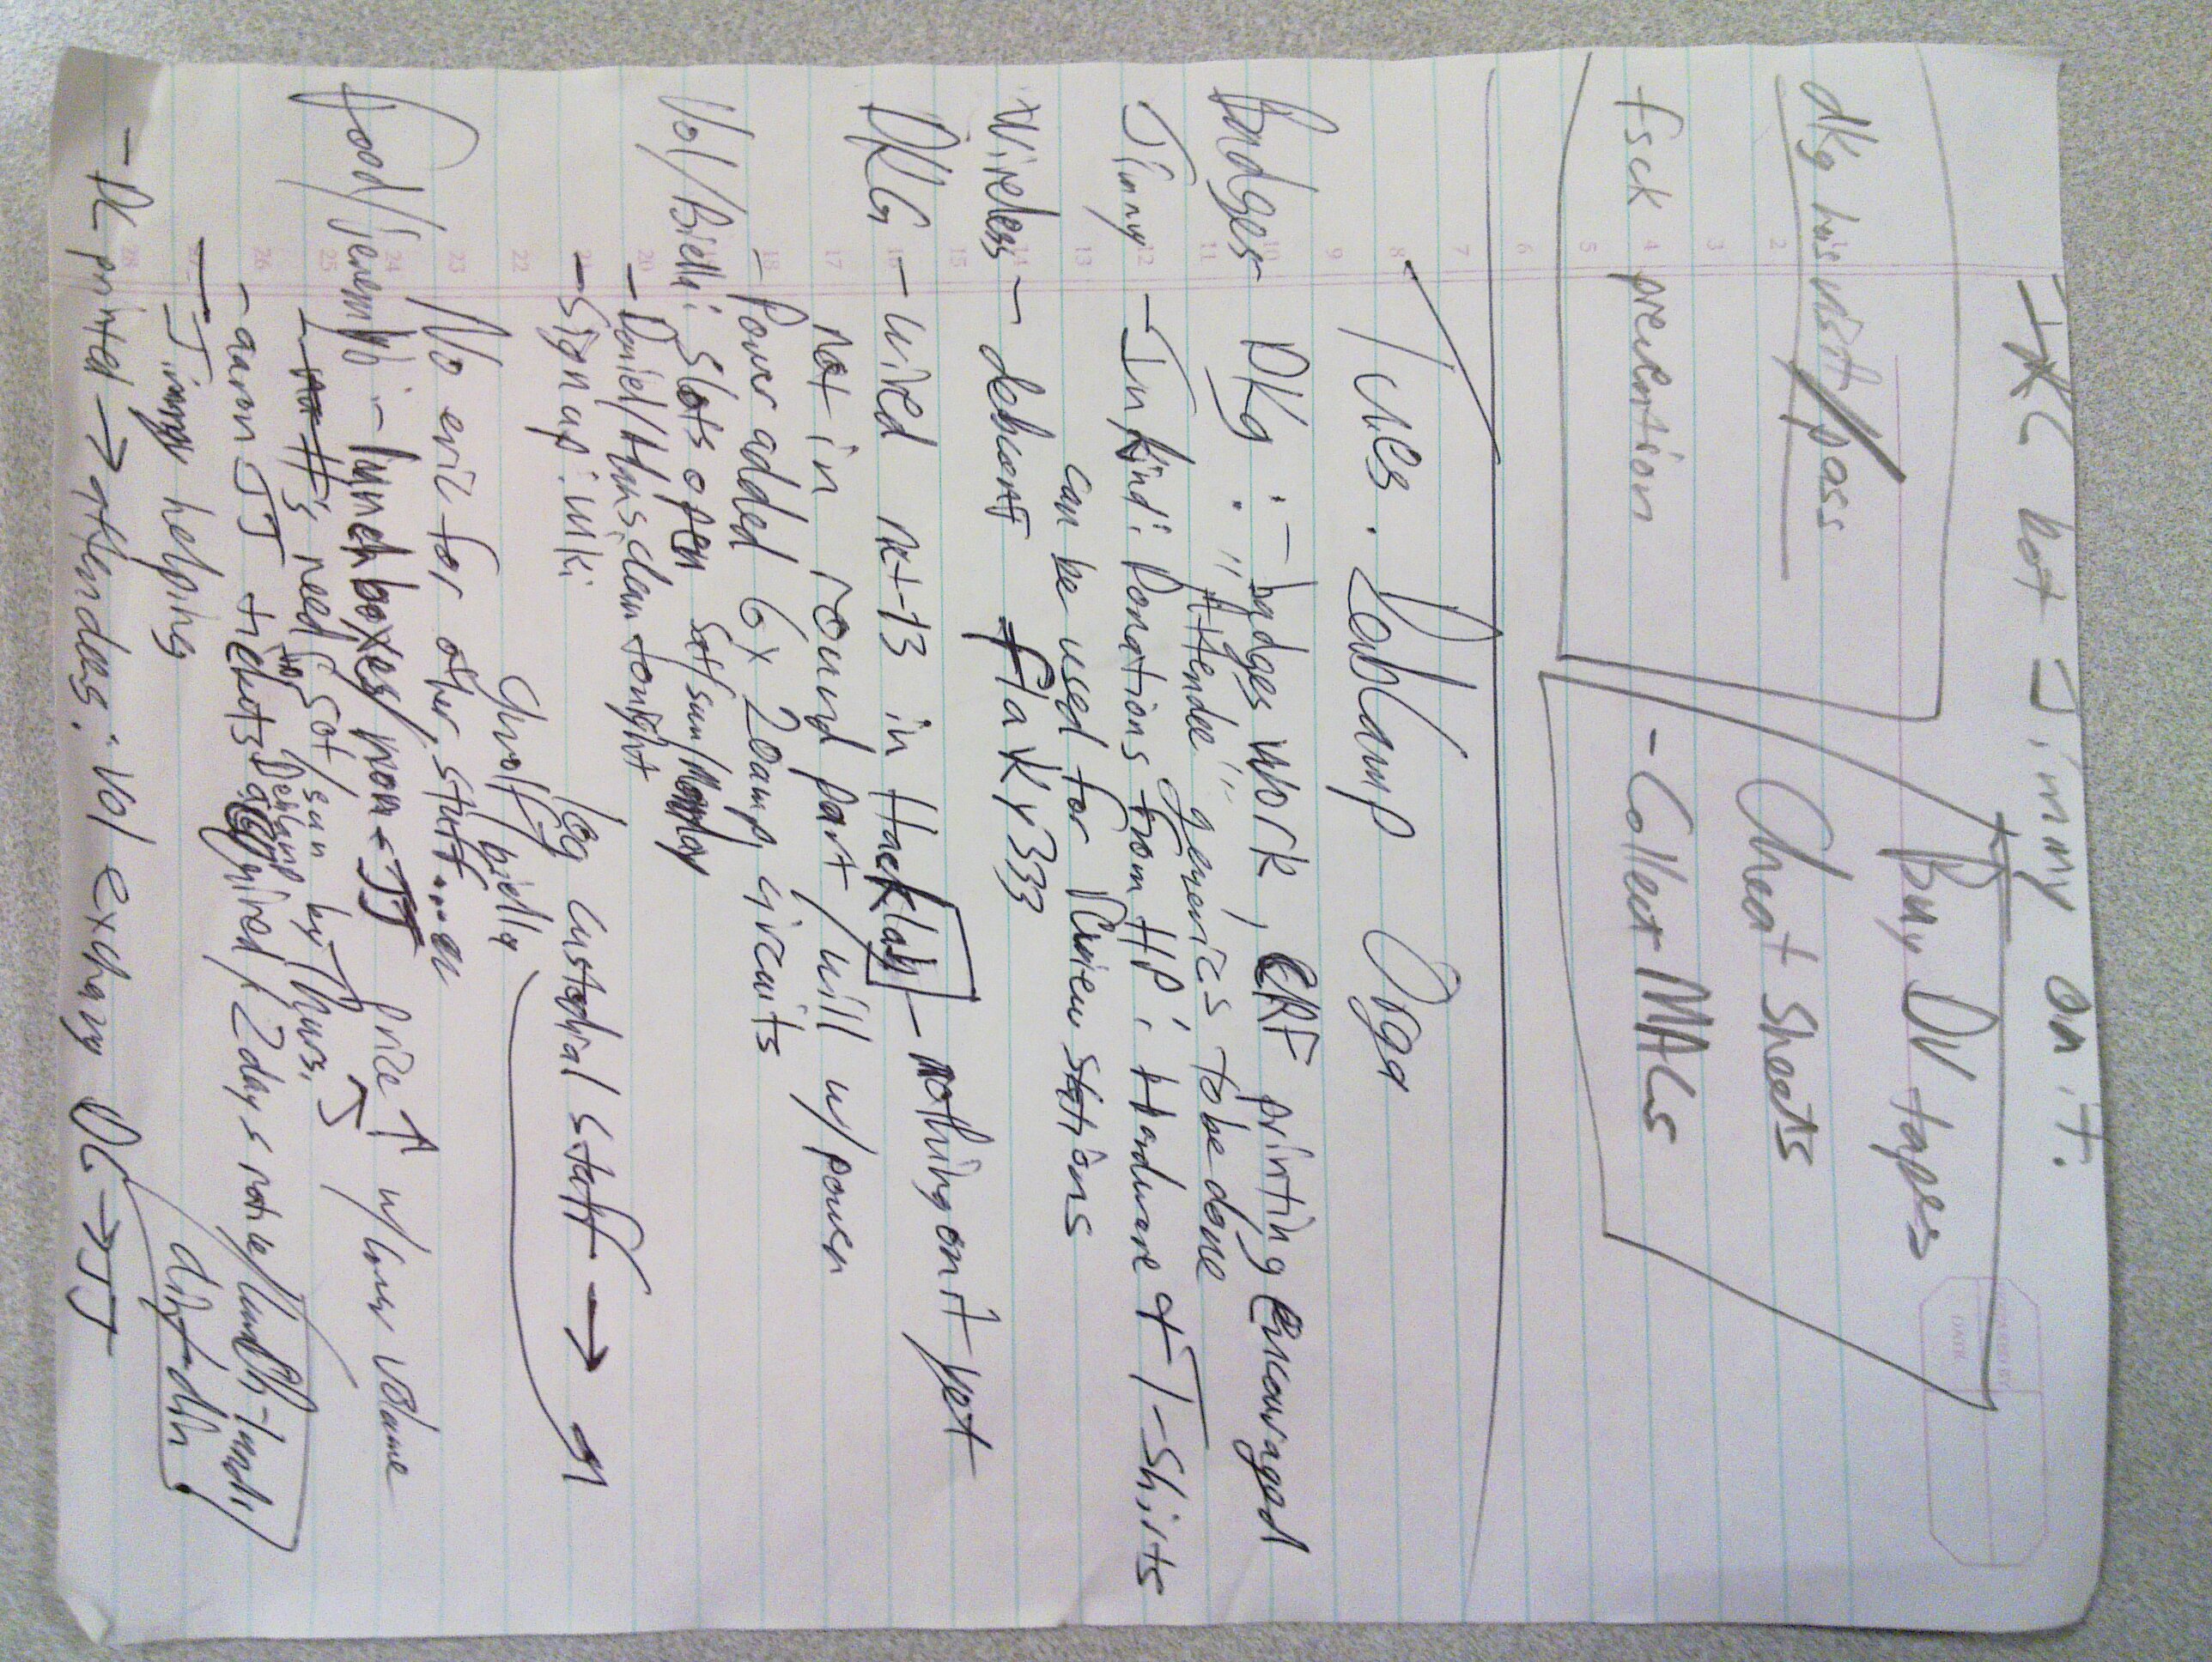 bot Jimmy on it.
Buy DV tapes
dkg has wrt/pass
Cheat sheets
fsck prevention
- Collect MACs
Tues. Debcamp Orga
Badges - DKg : - badges work, printing encouraged
"Attendee" generics to be done
Jimmy - In kind: Donations from HP: Hardware + T-Shirts
can be used for Review stations
Wireless - debconf flaky 333
DKG - wired net 13 in Hacklab - nothing on it yet
not in round part / will w/ power
- Power added 6x 20amp circuits
Vol/Biella: slots open Sat/Sun/Monday
- Daniel/Hans, clean tonight
- Sign up: wiki
log custodial staff →
biella
No eric for other stuff...
Food/Jeremy: - lunch boxes / non-JJ price ↑ w/ low volume
- #'s need for Sat/Sun by Thurs.
- aaron JJ tickets required / 2 days notice / lunch - 1 undiv
diff din.
- Jimmy helping
- DC printed → attendees. Vol exchang DC → JJ